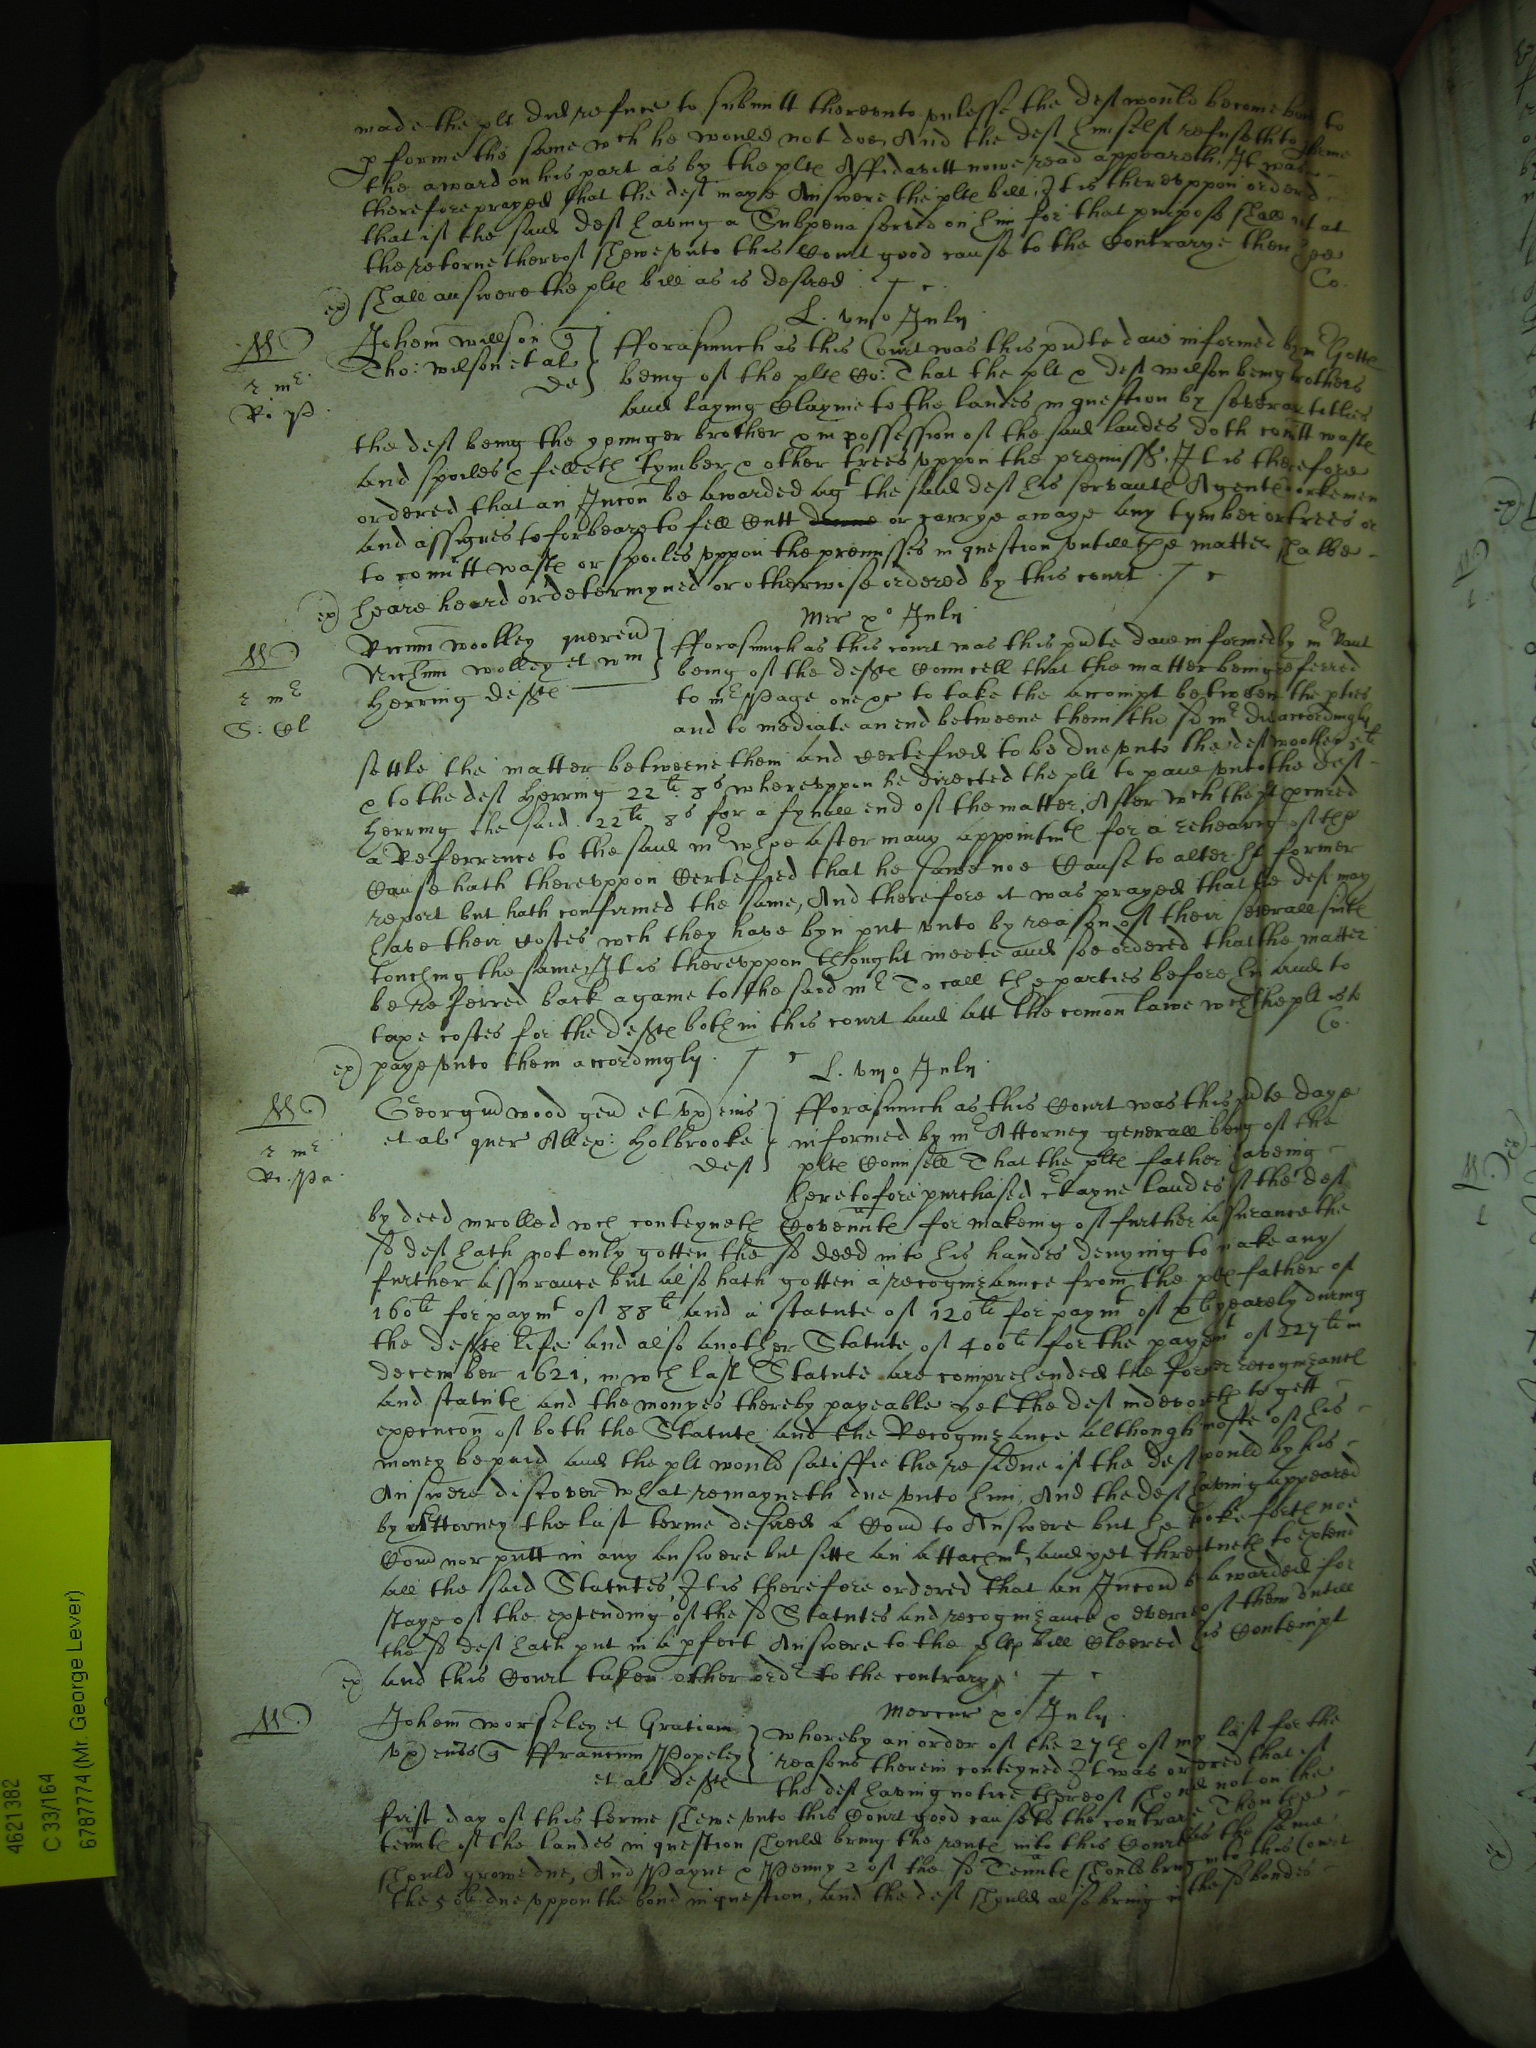 made the plt did refuse to submitt thereunto unlesse the deft would become bound to
pforme the same wch he would not doe, And the deft himselfe refuseth to pforme
the award on his part as by the pltes Affidavitt nowe read appeareth, It was
therefore prayed that the deft maye Answere the pltes bill, It is thereuppon ordered
that if the said deft having a Subpena served on him for that purpose shall not at
the retorne thereof shewe unto this Court good cause to the Contrarye then hee
shall answere the pltes bill as is desired
Co.
ex
L. vijo July
M
r mr
Ri: P
Johem willson q
Tho: wilson et al
De
fforasmuch as this Court was this pnte daie informed by mr
being of the pltes Co: That the plt & deft wilson being brothers
and laying Clayme to the landes in question by severall titles
the deft being the younger brother & in possession of the said landes doth comitt waste
and spoiles & felleth tymber & other trees uppon the premisses, It is therefore
ordered that an Incon be awarded agt the said deft his servantes Agentes workemen
and assignes to forbeare to fell Cutt downe or carrye awaye any tymber or trees or
to comitt waste or spoiles uppon the premisses in question untill the matter shalbe
heare heard or determyned or otherwise ordered by this court
ex
Mer xo July
M
r mr
S: Cl
woolley querend
Richum wolley et wm
Herring defftes
fforasmuch as this court was this pnte daie informed by mr
being of the defftes Councell that the matter being referred
to mr Page one &c to take the accompt betweene the pties
and to mediate an end betweene them the sd mr did accordingly
settle the matter betweene them and certefied to be due unto the deft woolley 5li
& to the deft Herring 22li 8s whereuppon he directed the plt to paie unto the deft
Herring the said 22li 8s for a fynall end of the matter, After wch the plt pcured
a Referrence to the said mr whoe after many appointmtes for a rehearing of the
Cause hath thereuppon Certefied that he sawe noe Cause to alter his former
report but hath confirmed the same, And therefore it was prayed that the deft may
have their costes wch they have byn put unto by reason of their severall suites
touching the same, It is thereuppon thought meete and soe ordered that the matter
be referred back againe to the said mr To call the parties before him and to
taxe costes for the defftes both in this court and att the comon lawe wch the plt is to
paye unto them accordingly
Co.
ex
L. vijo July
M
r mr
Ri. Pa
Georgiu wood gen et ux eius
et al quer Allex: Holbrooke
Deft
fforasmuch as this Court was this pnte daye
informed by mr Attorney generall being of the
pltes Counsell That the pltes father haveing
heretofore purchased Certayne landes of the deft
by deed inrolled wch conteyneth Covenntes for makeing of further assurance the
sd deft hath not only gotten the sd deed into his handes denying to make any
further assurance but also hath gotten a recognizaunce from the pltes father of
160li for paymt of 88li and a statute of 120li for paymt of xli yearely during
the defftes life and also another Statute of 400li for the paymt of 227li in
december 1621, in wch last Statute are comprehended the former recognizances
and statutes and the monyes thereby payeable yet the deft indevoreth to gett
execucon of both the Statutes and the Recognizance although moste of his
money be paid and the plt would satisffie the residue if the deft would by his
Answere discover what remayneth due unto him, And the deft having appeared
by Attorney the last terme desired a Comd to Answere but he tooke forth noe
Comd nor putt in any answere but sitts an attachmt, and yet threatneth to extend
all the said Statutes, It is therefore ordered that an Incon be awarded for
staye of the extending of the sd Statutes and recognizance & everie of them untill
the sd deft hath put in a pfect Answere to the pltes bill Cleered his Contempt
and this Court taken other ordr to the contrarye
ex
Mercur xo July
M
Johem worseley et Gratiam
ux eius q ffrancum Popeley
et al defftes
Whereby an order of the 27th of may last for the
reasons therein conteyned It was ordered that if
the deft having notice thereof should not on the
first day of this terme shewe unto this Court good cause to the contrarie Then the
tenntes of the landes in question should bring the rentes into this Court as the same
should growe due, And Payne & Penny 2 of the sd Tenntes should bring into this Court
the 50li due uppon the bond in question, and the deft should also bring in the sd bondes
4621382
C 33/164
6787774 (Mr. George Lever)